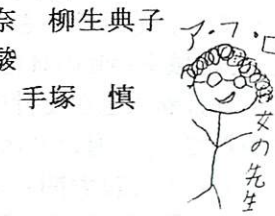 奈 柳生典子
駿
手塚 慎
ア・フ・ロ
女の先生